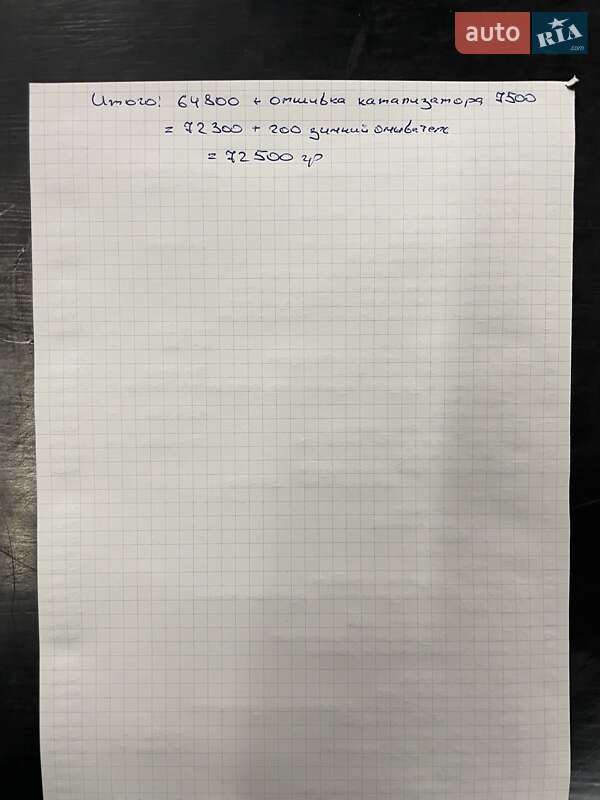 auto RIA .com
Итого: 64800 + отшивка катализатора 7500
= 72300 + 200 зимний омыватель
= 72500 гр